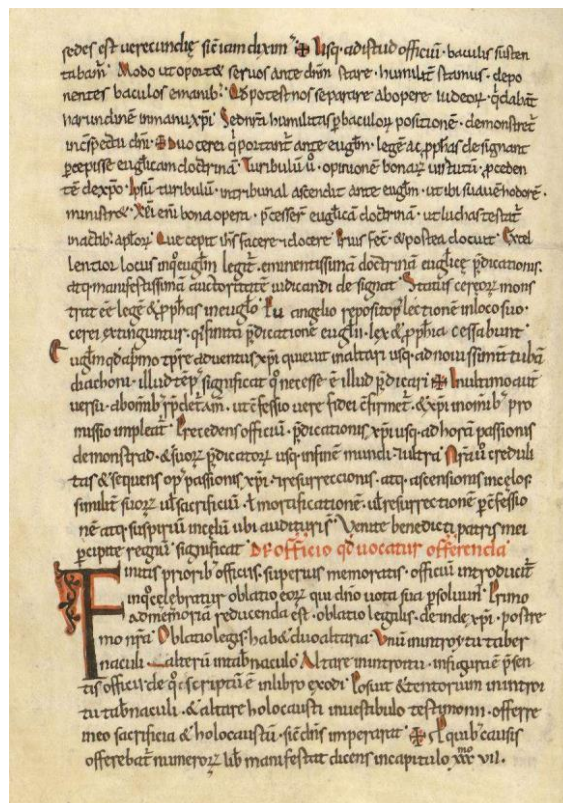 sedes est uerecundię sic̄ iam diximꝰ Usq· ad istud officiū· baculis susten
tabam̄ Modo ut oport& seruos ante dn̄m stare· humilit̄ stamus· depo
nentes baculos e manib; Q̄d potest nos separare ab opere iudeoꝝ· q̄ dabāt
harundinē in manu xp̄i Sed nr̄a humilitas p baculoꝝ positionē· demonstret̄
in c̄spectu dn̄i· Duo cerei q̄ portant̄ ante euḡlm· legē ac pph̄as designant
p̄cepisse euglicam doctrinā Turibulū u̅· opinionē bonaꝝ uirtutū p̄ceden
tē de xp̄o Ipsū turibulū· in tribunal ascendit ante euglm· ut ibi suauē odorē·
ministr& Xp̄i eni bona opera· p̄cesser̄ euglicā doctrinā· ut luchas testat̄
in actib; apl̄oꝝ Que cepit ih̄s facere ⁊ docere Prius fec̄· & postea docuit Excel
lentior locus in q̊ euglm legit̄· eminentissimā doctrinā euglicę p̄dicationis·
atq· manifestissimā auctoritatē iudicandi designat Status cereoꝝ mons
trat eē legē & pph̄as in euglo Eu angelio reposito p lectionē in loco suo·
cerei extinguntur· q̄ finita p̄dicatione euglii· lex & pph̄ia cessabunt
Euglm qd a primo tp̄re aduentus xp̄i quieuit in altari usq· ad nouissimā tubā
diachoni· illud temp̄ significat q̊ necesse ē illud p̄dicari In ultimo aut̄
uersu· ab omnib; rp̄det̄ am̄· ut c̄fessio uere fidei c̄firmet̄· & xp̄i in omnib; pro
missio impleat̄ Precedens officiū· p̄dicationis xp̄i usq· ad horā passionis
demonstrad· & suoꝝ p̄dicatoꝝ usq· in finē mundi ⁊ ultra Nr̄arū creduli
tas & sequens op passionis xp̄i· ⁊ resurreccionis· atq· ascensionis in celos
similit̄ suoꝝ ut̄ sacrificiū· ł mortificationē· ut̄ resurrectionē p c̄fessio
nē atq· suspiriū in celū ubi audituris Venite benedicti patris mei
percipite regnū significat De officio qd uocatur offerenda
Finitis priorib; officiis superius memoratis· officiū introducit̄
in q̊ celebratur oblatio eoꝝ qui dn̄o uota sua psoluunt̄ Primo
ad memoriā reducenda est· oblatio legalis· deinde xp̄i· postre
mo nr̄a Oblatio legis hab& duo altaria Unū in introitu taber
naculi ⁊ alterū in tab̄naculo Altare in introitu· in figurā ē p̄sen
tis officii de q̊ scriptū ē in libro exodi Posuit & tentorium in introi
tu tab̄naculi· & altare holocausti in uestibulo testimonii· offerre
in eo sacrificia & holocaustū· sic̄ dn̄s imperarat quib; causis
offerebat̄ numeroꝝ lib̄ manifestat dicens in capitulo xxx vii·